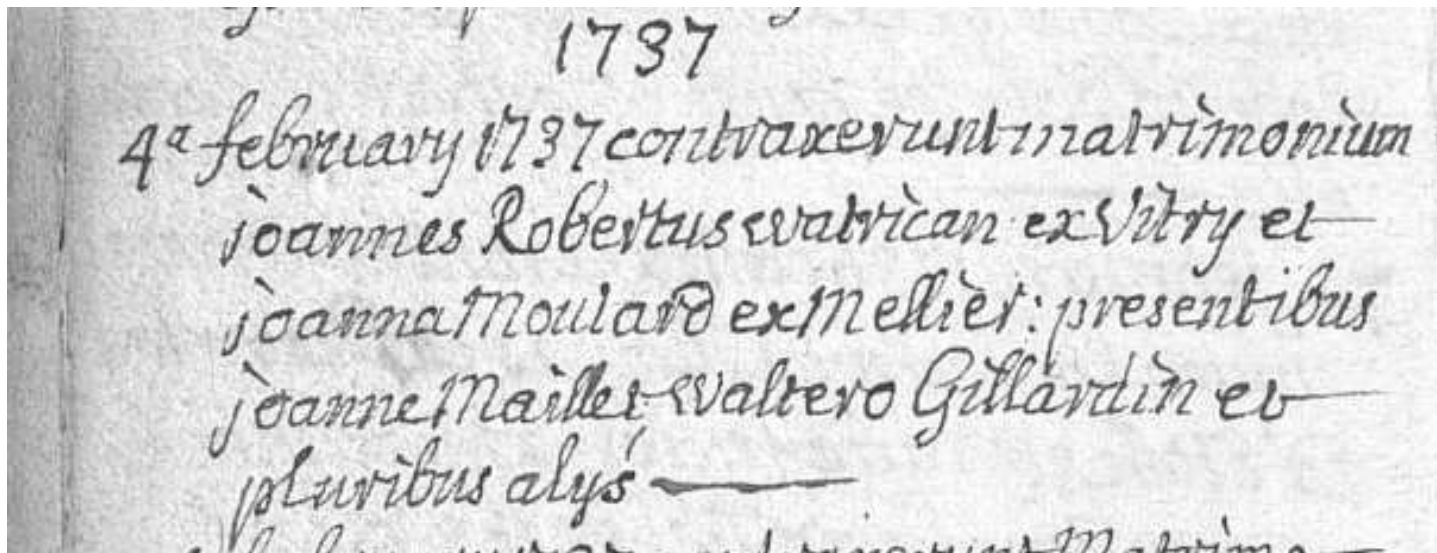 1737
4a february 1737 contraxerunt matrimonium
joannes Robertus watrican ex Vitry et
joanna Moulard ex Mellier: presentibus
joanne Maillet waltero Gillardin et
pluribus alys